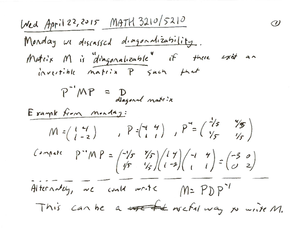 Wed April 22, 2015 MATH 3210/5210 ①
Monday we discussed diagonalizability.
Matrix M is "diagonalizable" if there exist an
invertible matrix P such that
P⁻¹MP = D
diagonal matrix
Example from Monday:
M = (1 4 / 1 -2), P = (-1 4 / 1 1), P⁻¹ = (-1/5 4/5 / 1/5 1/5)
Compute P⁻¹MP = (-1/5 4/5 / 1/5 1/5)(1 4 / 1 -2)(-1 4 / 1 1) = (-3 0 / 0 2)
Alternately, we could write M = PDP⁻¹
This can be a useful way to write M.